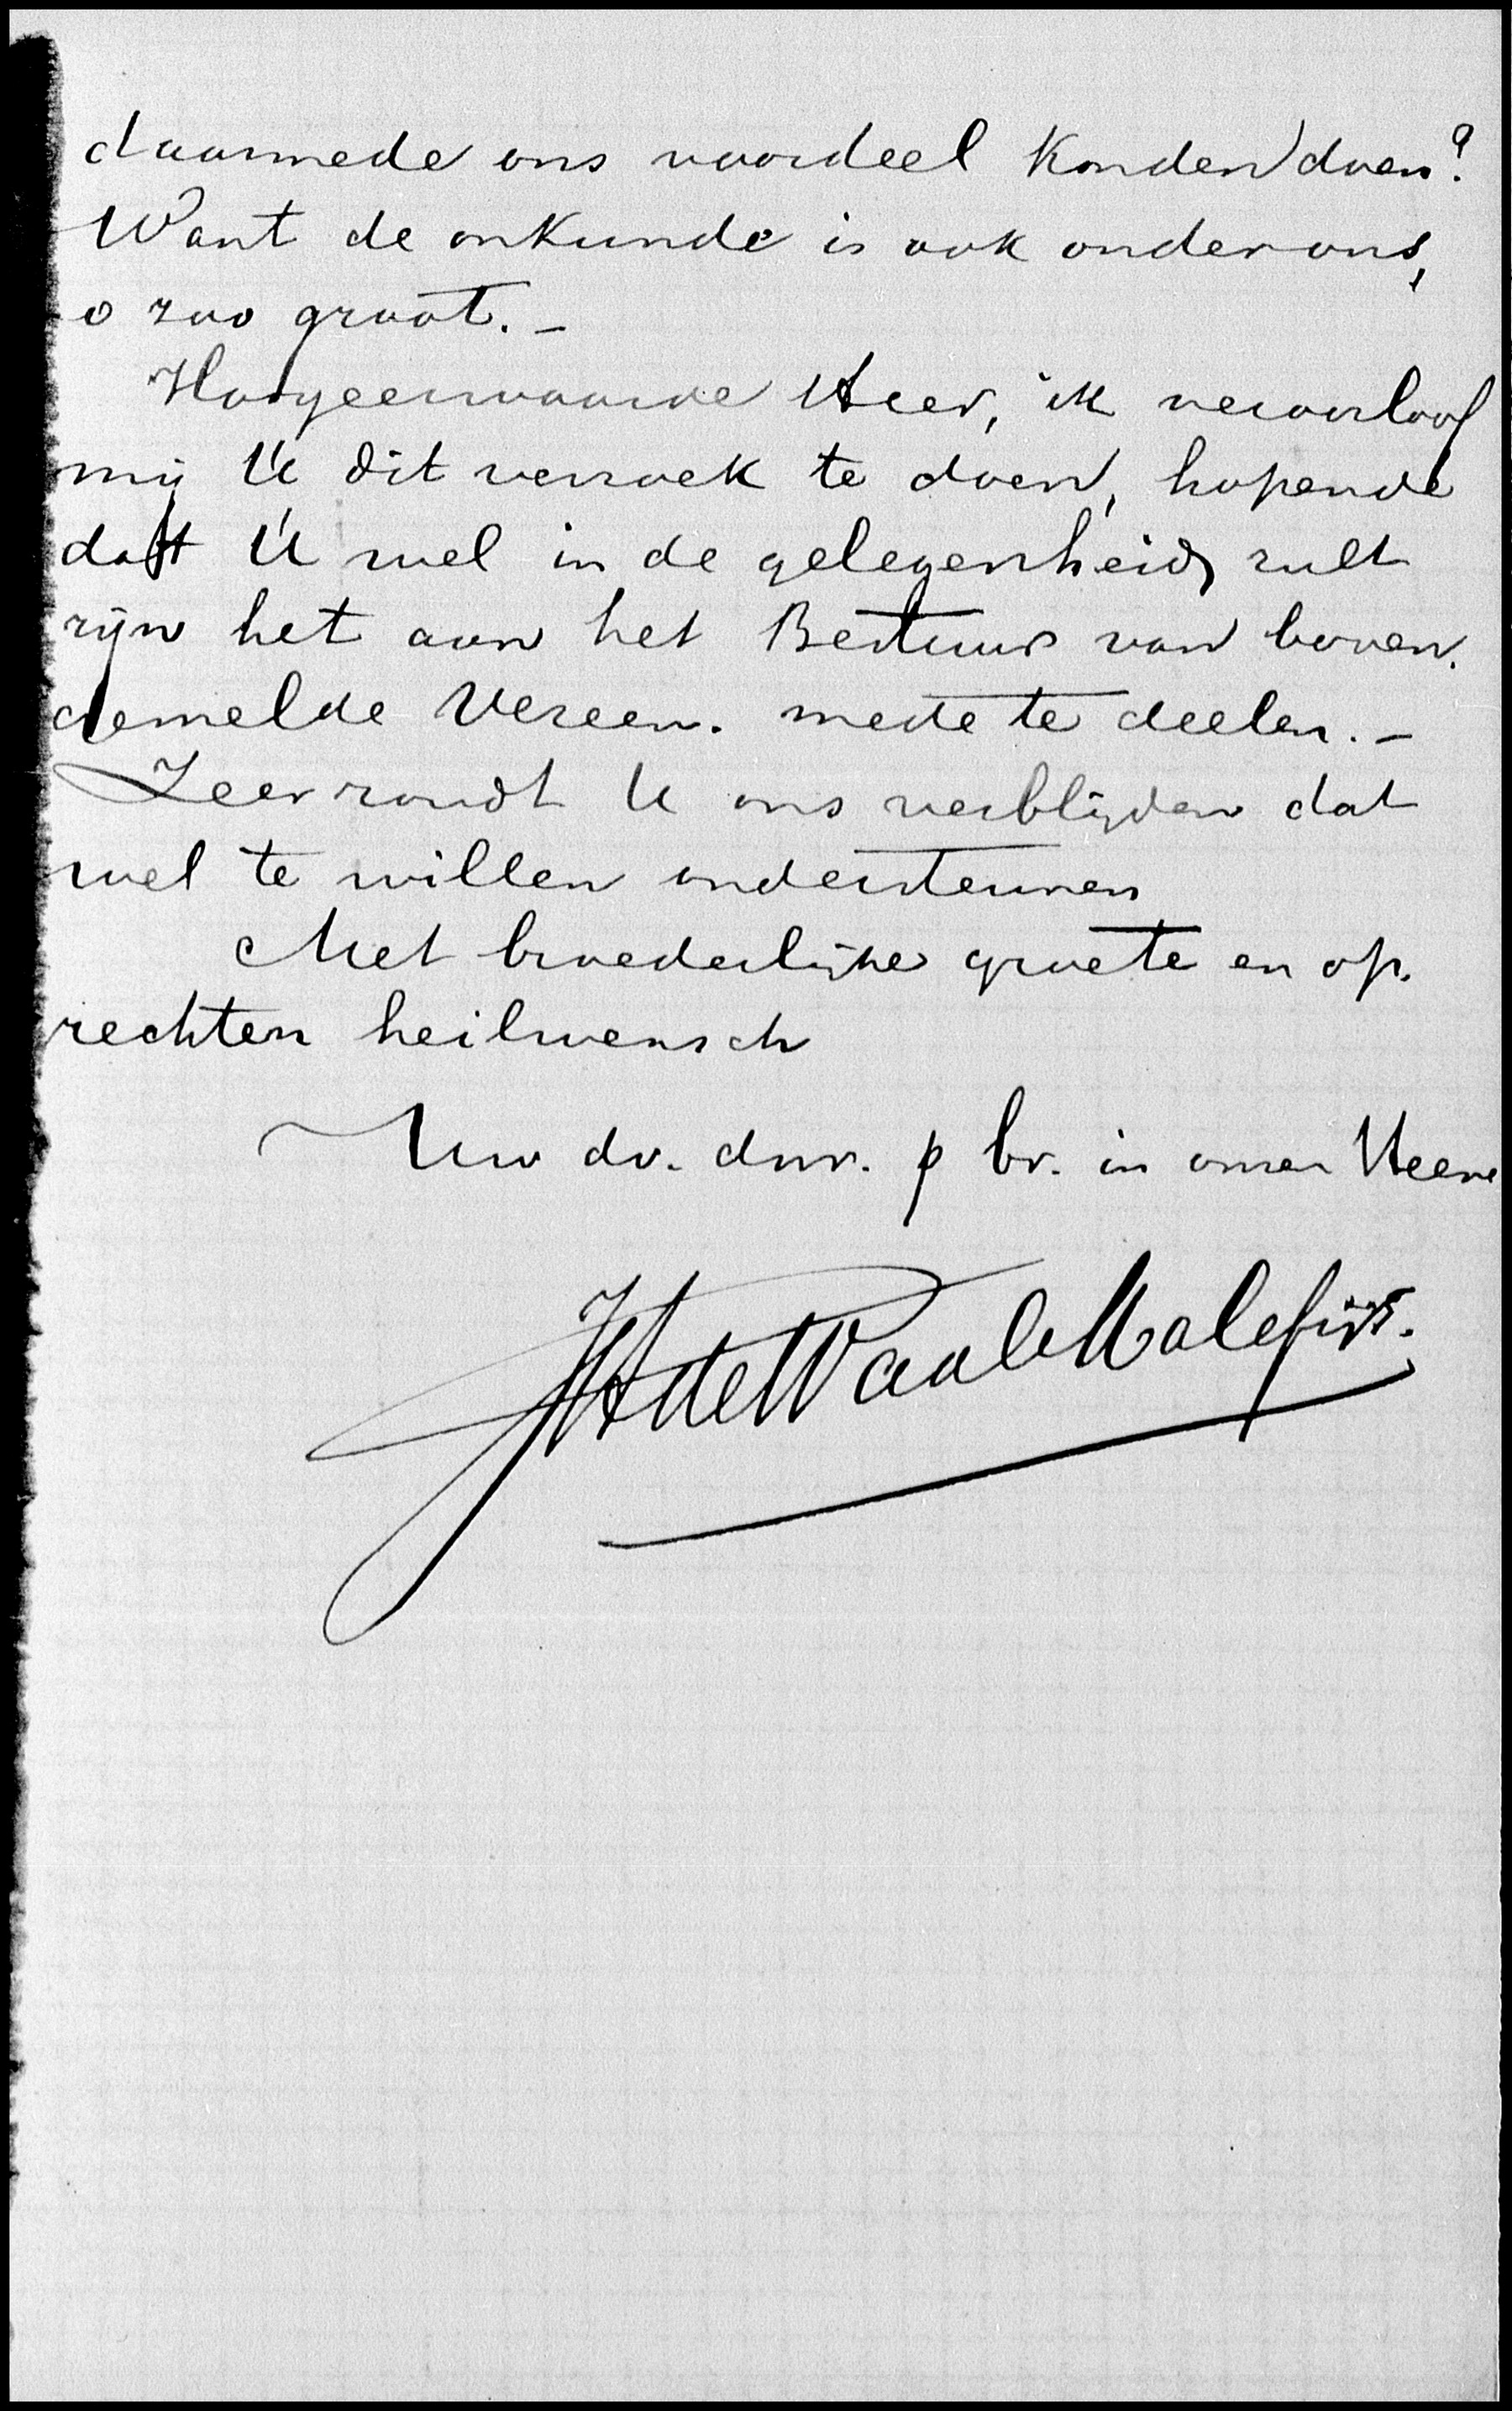 daarmede ons voordeel konden doen?
Want de onkunde is ook onder ons,
o zoo groot. -
Hoogeerwaarde Heer, ik veroorloof
mij U dit verzoek te doen, hopende
dat U wel in de gelegenheid zult
zijn het aan het Bestuur van boven.
gemelde Vereen. mede te deelen. -
Zeer zoudt U ons verblijden dat
wel te willen ondersteunen
Met broederlijke groete en op.
rechten heilwensch
Uw dv. dnr. & br. in onzen Heere
JH de Waal Malefijt.